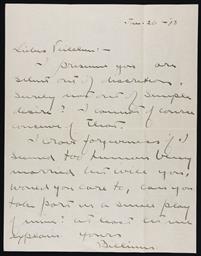 Jan. 26 - '13
I presume you are
silent out of discretion.
Surely not out of simple
desire? I cannot of course
conceive of that.
I crave forgiveness if I
seemed too human being
married but will you,
would you care to, can you
take part in a small play
of mine? At least let me
explain yours